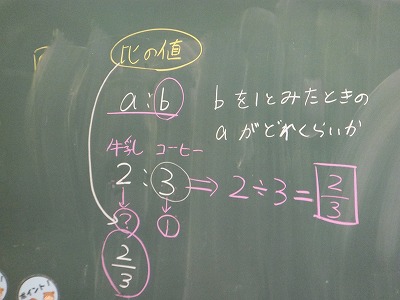 比の値
a:b
bを1とみたときの
aがどれくらいか
牛乳 コーヒー
2:3⇒2÷3=2/3
? 1
2/3
ポイント!